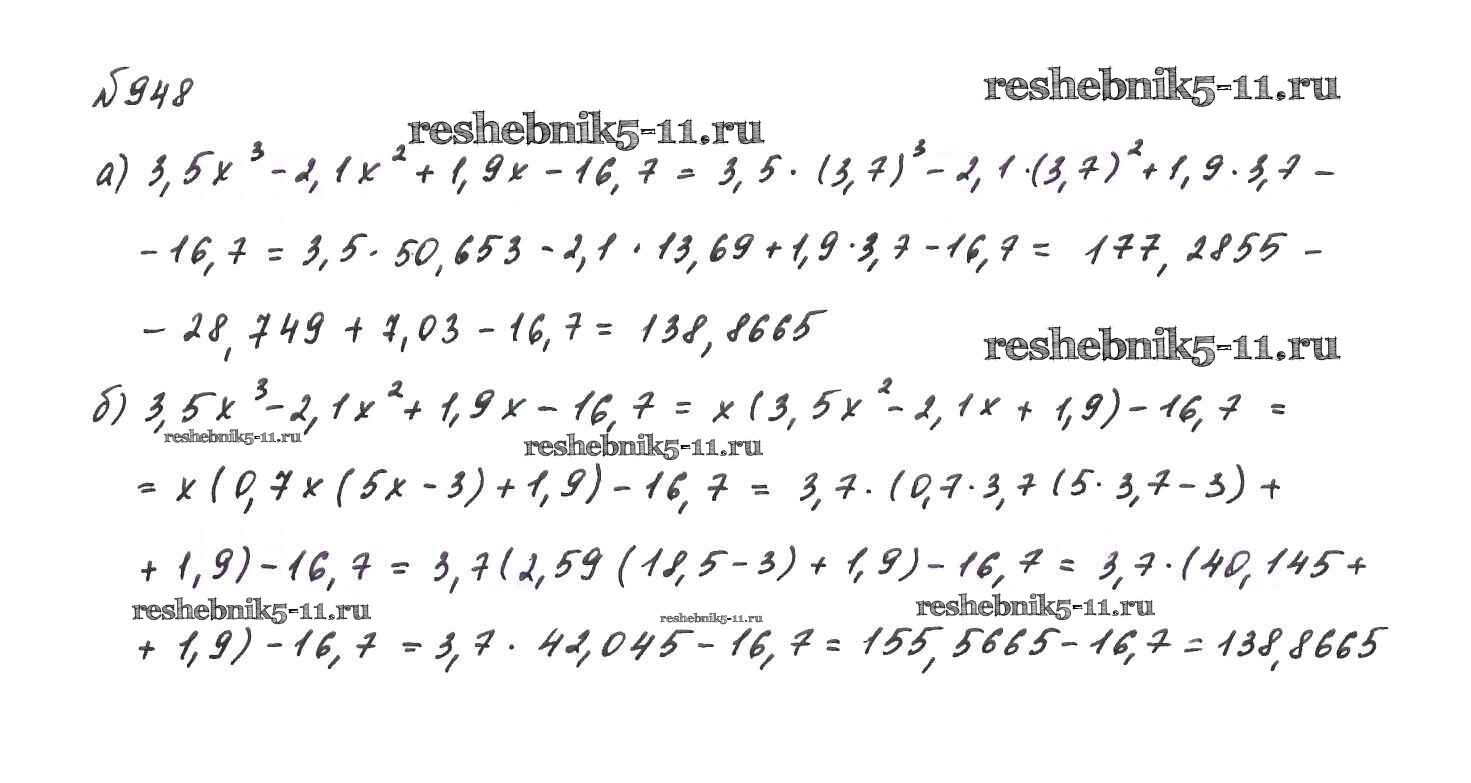 №948
reshebnik5-11.ru
reshebnik5-11.ru
а) 3,5x³ - 2,1x² + 1,9x - 16,7 = 3,5 · (3,7)³ - 2,1 · (3,7)² + 1,9 · 3,7 -
- 16,7 = 3,5 · 50,653 - 2,1 · 13,69 + 1,9 · 3,7 - 16,7 = 177,2855 -
- 28,749 + 7,03 - 16,7 = 138,8665
reshebnik5-11.ru
б) 3,5x³ - 2,1x² + 1,9x - 16,7 = x(3,5x² - 2,1x + 1,9) - 16,7 =
reshebnik5-11.ru
reshebnik5-11.ru
= x(0,7x(5x - 3) + 1,9) - 16,7 = 3,7 · (0,7 · 3,7(5 · 3,7 - 3) +
+ 1,9) - 16,7 = 3,7(2,59(18,5 - 3) + 1,9) - 16,7 = 3,7 · (40,145 +
reshebnik5-11.ru
reshebnik5-11.ru
reshebnik5-11.ru
+ 1,9) - 16,7 = 3,7 · 42,045 - 16,7 = 155,5665 - 16,7 = 138,8665